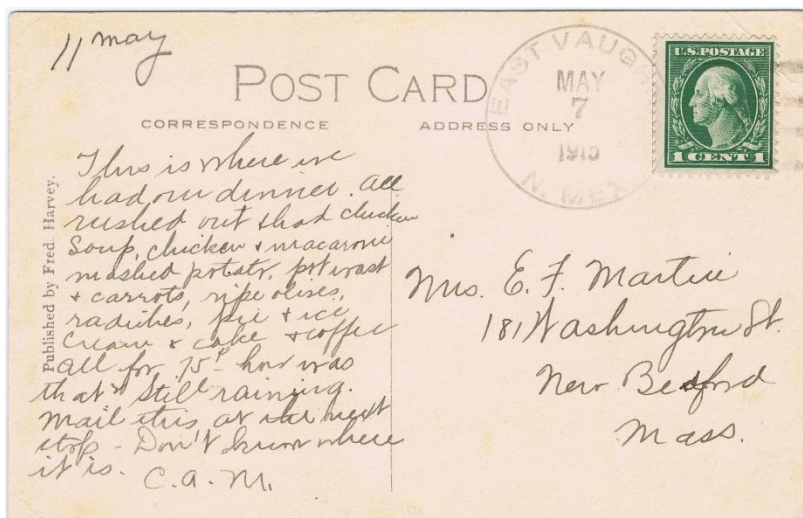 11 May
POST CARD
CORRESPONDENCE
ADDRESS ONLY
EAST VAUGH
MAY
7
N. MEX
U.S. POSTAGE
1 CENT 1
Published by Fred. Harvey.
This is where we
had our dinner. All
rushed out & had chicken
Soup, chicken & macaroni
mashed potato, pot roast
& carrots, ripe olives,
radishes, pie & ice
cream & cake & coffee
all for 75¢ how was
that? Still raining.
Mail this at the next
stop - Don't know where
it is.
C.A.M.
Mrs. E. F. Martin
181 Washington St.
New Bedford
Mass.